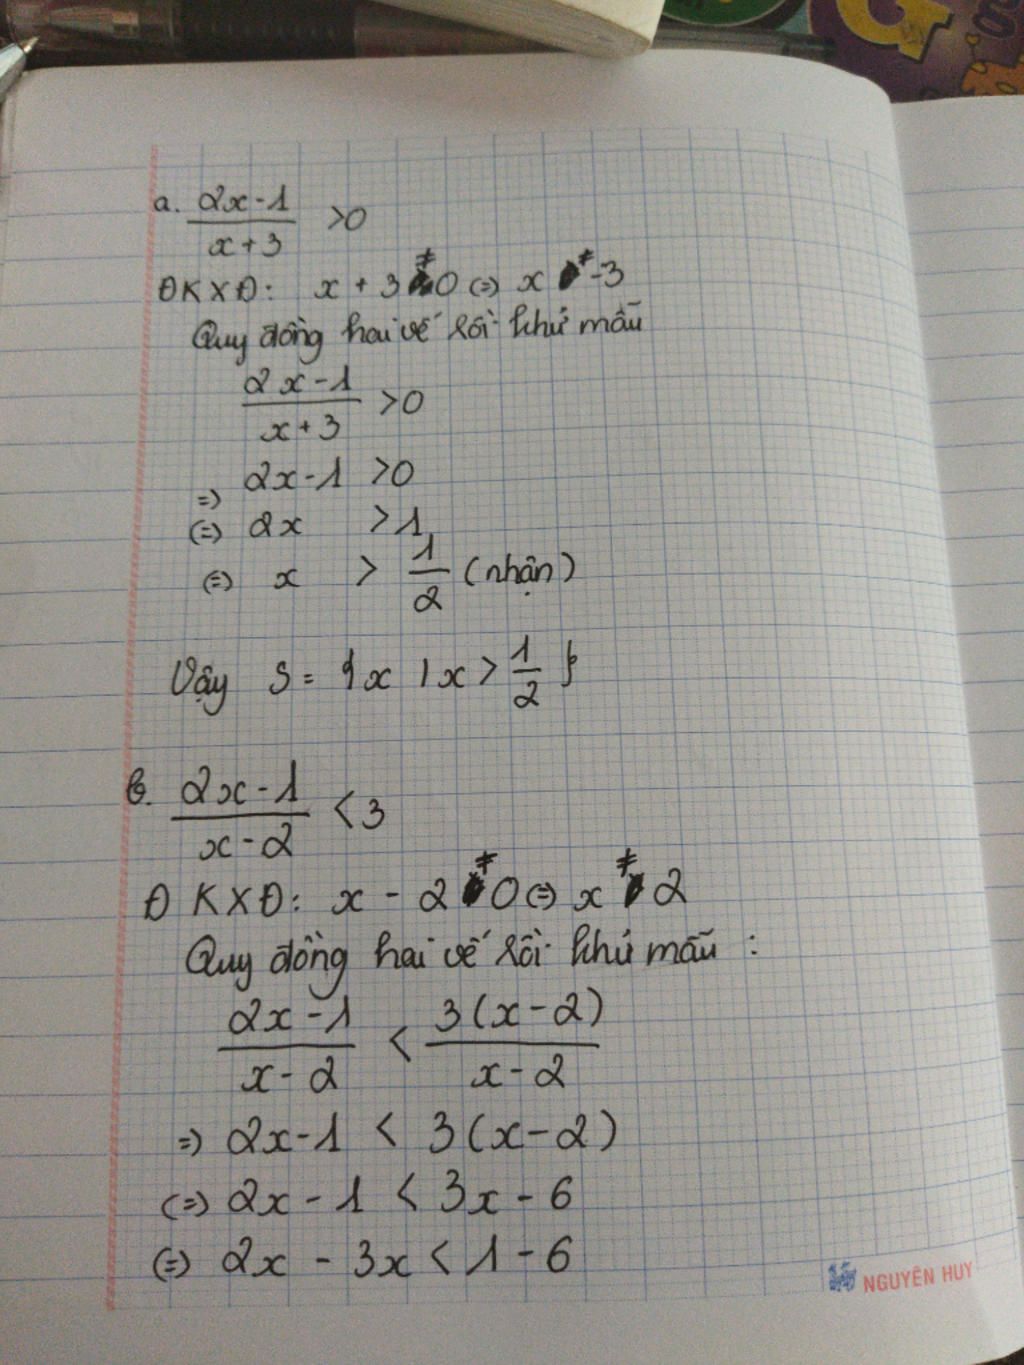 G
a. (2x-1)/(x+3) >0
ĐKXĐ: x + 3 ≠ 0 (=) x ≠ -3
Quy đồng hai vế rồi khử mẫu
(2x-1)/(x+3) >0
=) 2x-1 >0
(=) 2x >1
(=) x > 1/2 (nhận)
Vậy S = {x | x > 1/2}
b. (2x-1)/(x-2) <3
ĐKXĐ: x - 2 ≠ 0 (=) x ≠ 2
Quy đồng hai vế rồi khử mẫu :
(2x-1)/(x-2) < 3(x-2)/(x-2)
=) 2x-1 < 3(x-2)
(=) 2x - 1 < 3x - 6
(=) 2x - 3x < 1 - 6
NGUYÊN HUY